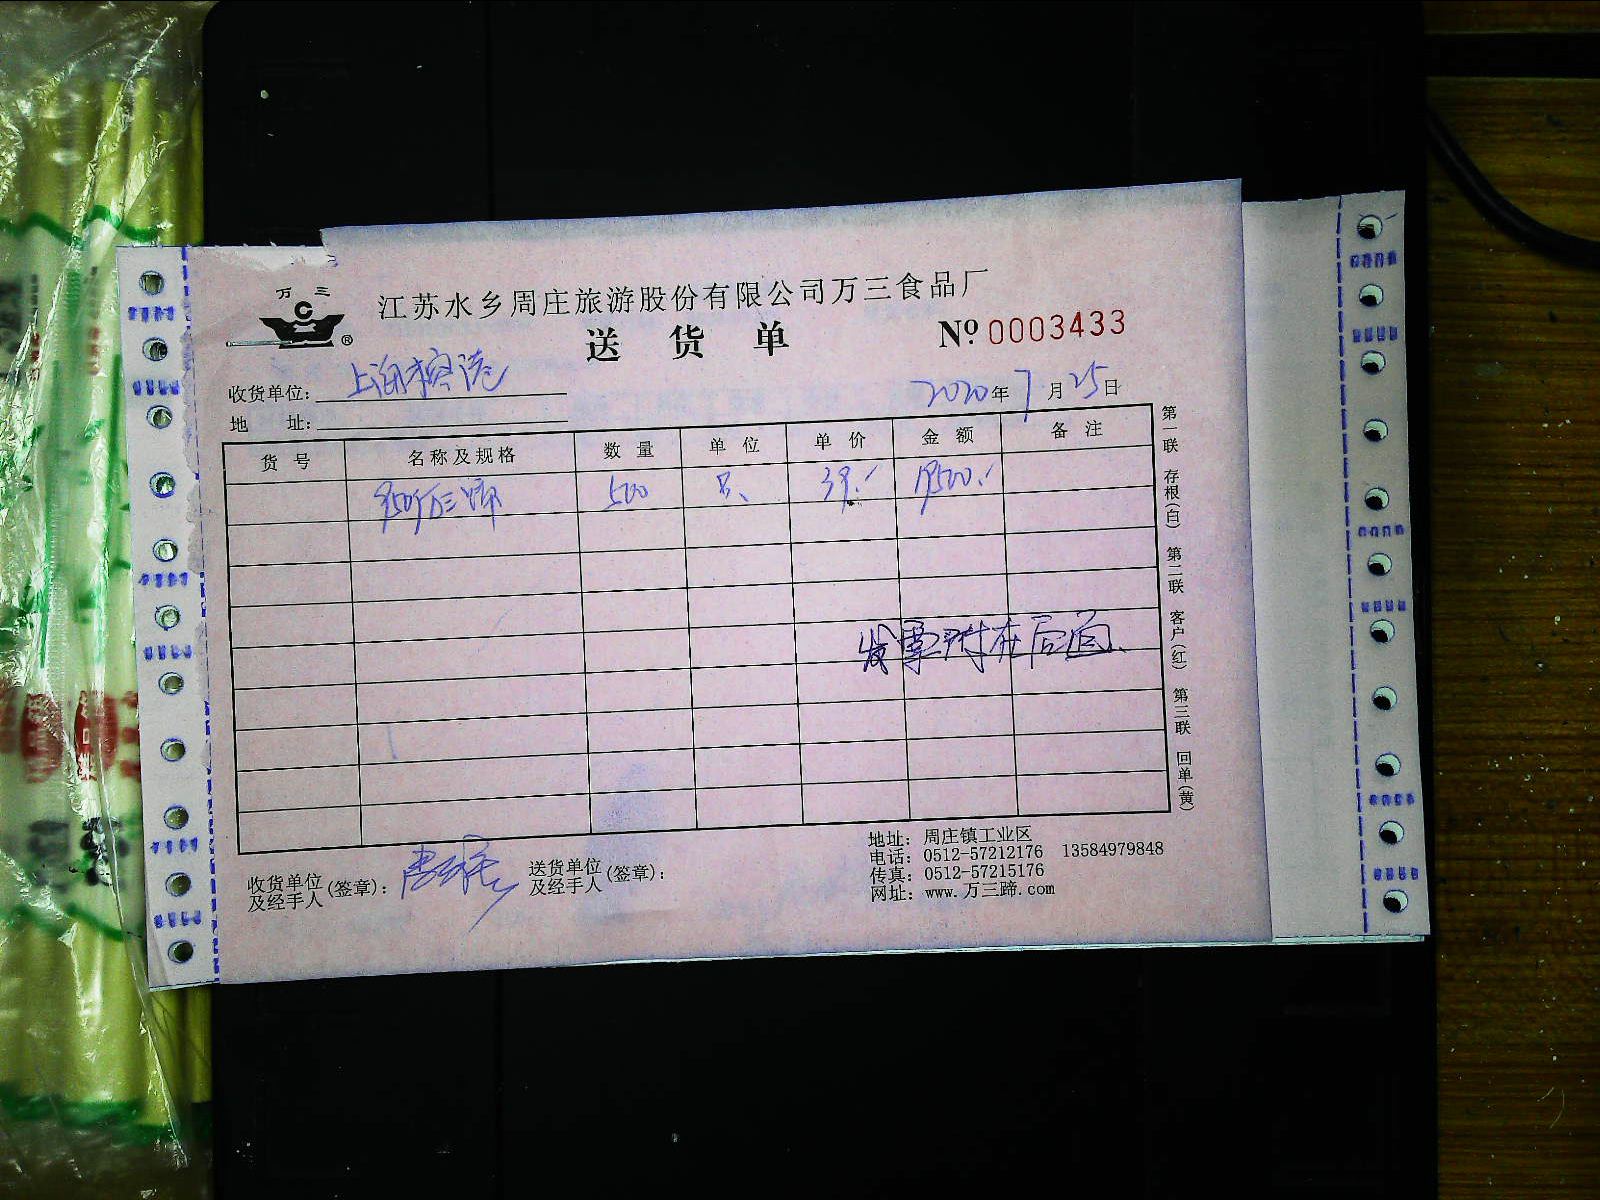 万三
®
江苏水乡周庄旅游股份有限公司万三食品厂
送 货 单
Nº 0003433
收货单位: 上海
2020年7月25日
地 址:
货 号 名称及规格 数 量 单 位 单 价 金 额 备 注
950万三蹄 500 只、 39.- 19500.-
发票附在后面、
第一联 存根(白) 第二联 客户(红) 第三联 回单(黄)
收货单位及经手人(签章):
送货单位及经手人(签章):
地址: 周庄镇工业区
电话: 0512-57212176 13584979848
传真: 0512-57215176
网址: www.万三蹄.com